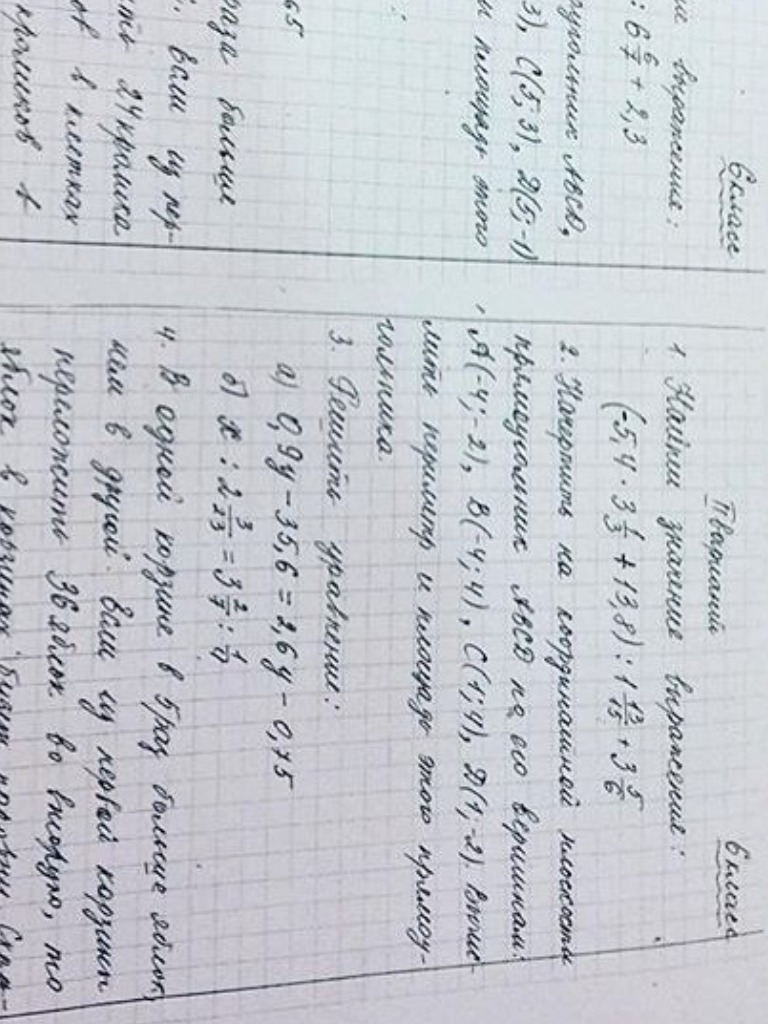 6 класс
ие выражения:
: 6 6/7 + 2,3
угольник ABCD,
3), C(5; 3), D(5; -1)
и площадь этого
65
раза больше
. Если из пер-
24 кролика
ов в клетках
кроликов
6 класс
II вариант
1. Найти значение выражения:
(-5,4 · 3 1/3 + 13,8) : 1 13/15 + 3 5/6
2. Начертить на координатной плоскости
прямоугольник ABCD по его вершинам:
A(-4; -2), B(-4; 4), C(1; 4), D(1; -2). Вычис-
лить периметр и площадь этого прямоу-
гольника.
3. Решить уравнение:
а) 0,9y - 35,6 = 2,6y - 0,75
б) x : 2 3/23 = 3 2/7 :
4. В одной корзине в 5 раз больше яблок,
чем в другой. Если из первой корзины
переложить 36 яблок во вторую, то
яблок в корзинах будет поровну. Сколь-